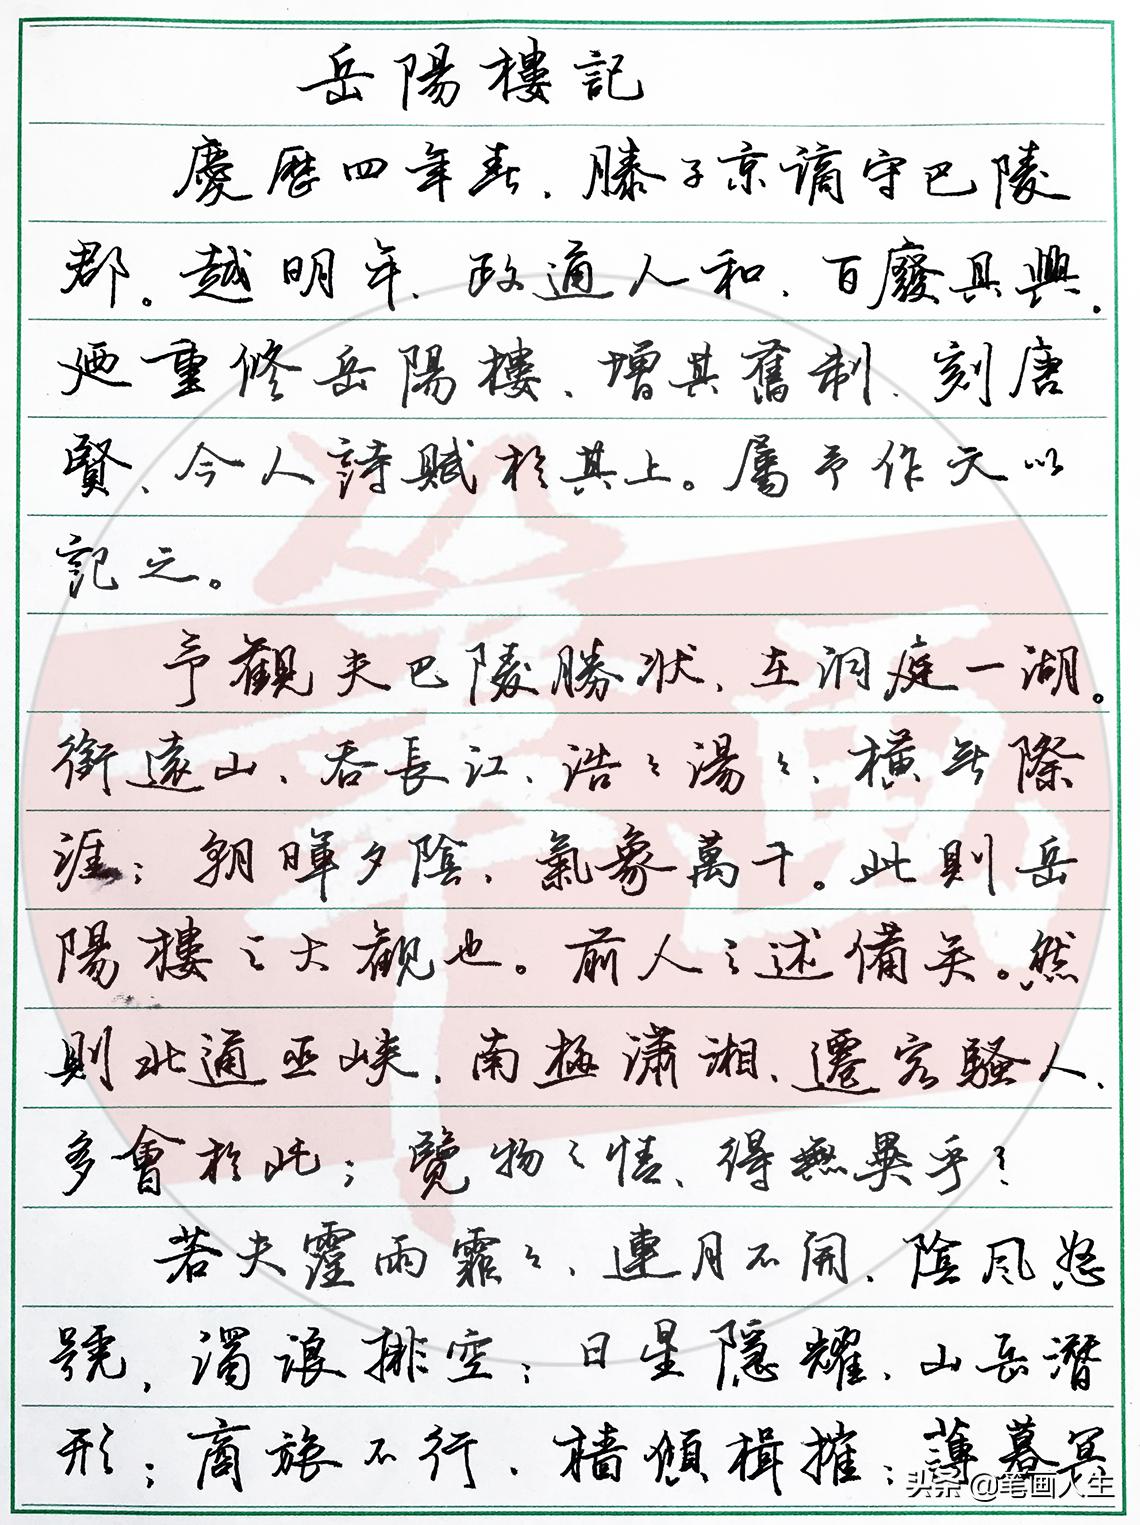 岳陽樓記
慶歷四年春、滕子京謫守巴陵
郡。越明年、政通人和、百廢具興.
廼重修岳陽樓、增其舊制、刻唐
賢、今人詩賦於其上。屬予作文以
記之。
予觀夫巴陵勝狀、在洞庭一湖。
銜遠山、吞長江、浩々湯々、橫無際
涯；朝暉夕陰、氣象萬千。此則岳
陽樓之大觀也。前人之述備矣。然
則北通巫峽、南極瀟湘、遷客騷人、
多會於此；覽物之情、得無異乎？
若夫霪雨霏々、連月不開、陰風怒
號、濁浪排空；日星隱耀、山岳潛
形；商旅不行、檣傾楫摧；薄暮冥
头条 @笔画人生
笔画